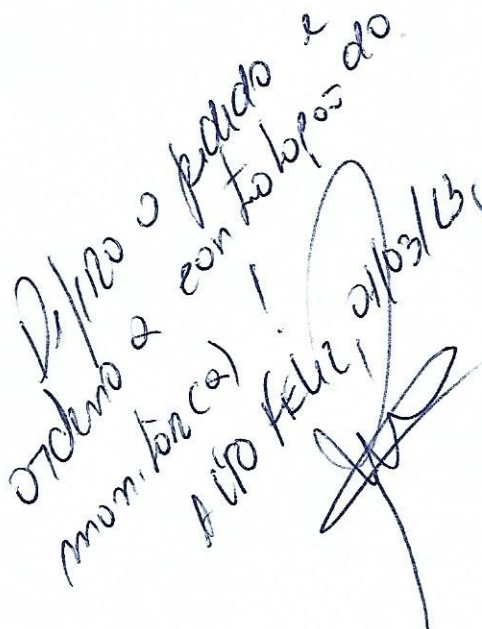 Defiro o pedido e
ordeno a contratação do
monitor(a)!
Alto Feliz, 01/03/13,